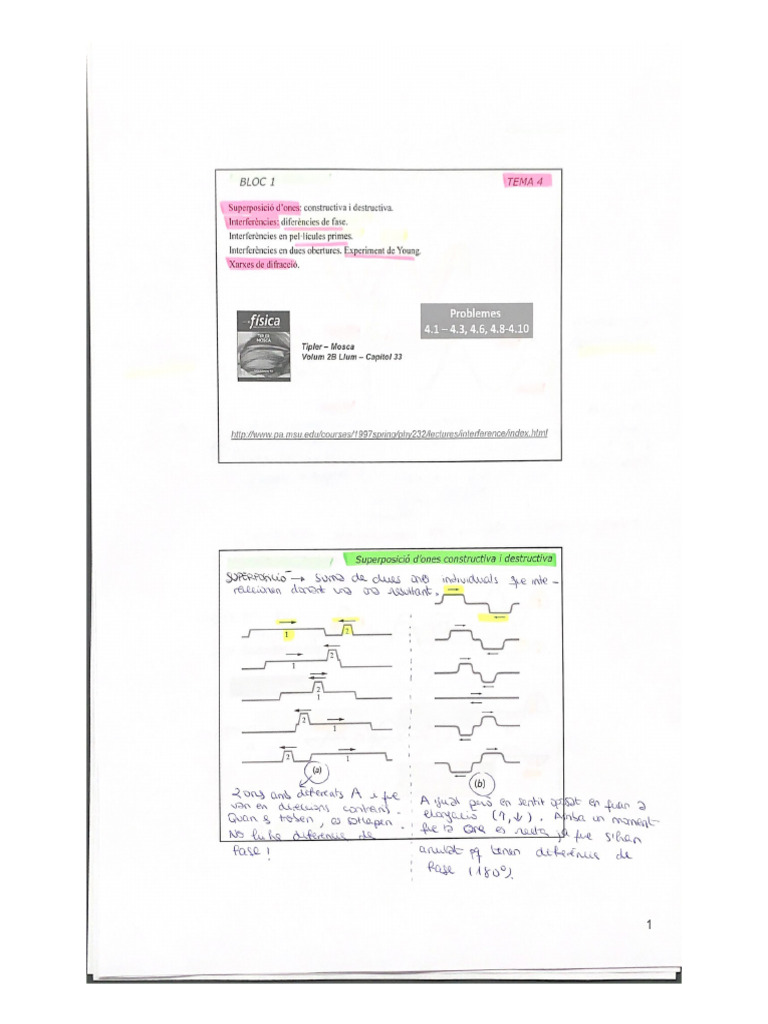 BLOC 1
TEMA 4
Superposició d'ones: constructiva i destructiva.
Interferències: diferències de fase.
Interferències en pel·lícules primes.
Interferències en dues obertures. Experiment de Young.
Xarxes de difracció.
física
TIPLER
MOSCA
Problemes
4.1 – 4.3, 4.6, 4.8-4.10
Tipler – Mosca
Volum 2B Llum – Capítol 33
http://www.pa.msu.edu/courses/1997spring/phy232/lectures/interference/index.html
Superposició d'ones constructiva i destructiva
SUPERPOSICIÓ → suma de dues ones individuals que inte-
reaccionen donant una ona resultant.
1 2
2
1
2
1
2
1
2 1
(a)
(b)
2 ons amb diferents A i que
van en direccions contràries
Quan es troben, es solapen.
No hi ha diferència de
fase!
A igual però en sentit oposat en quan a
elongació (↑,↓). Arriba un moment
que la ona es nul·la ja que s'han
anulat pq tenen diferència de
fase (180º).
1